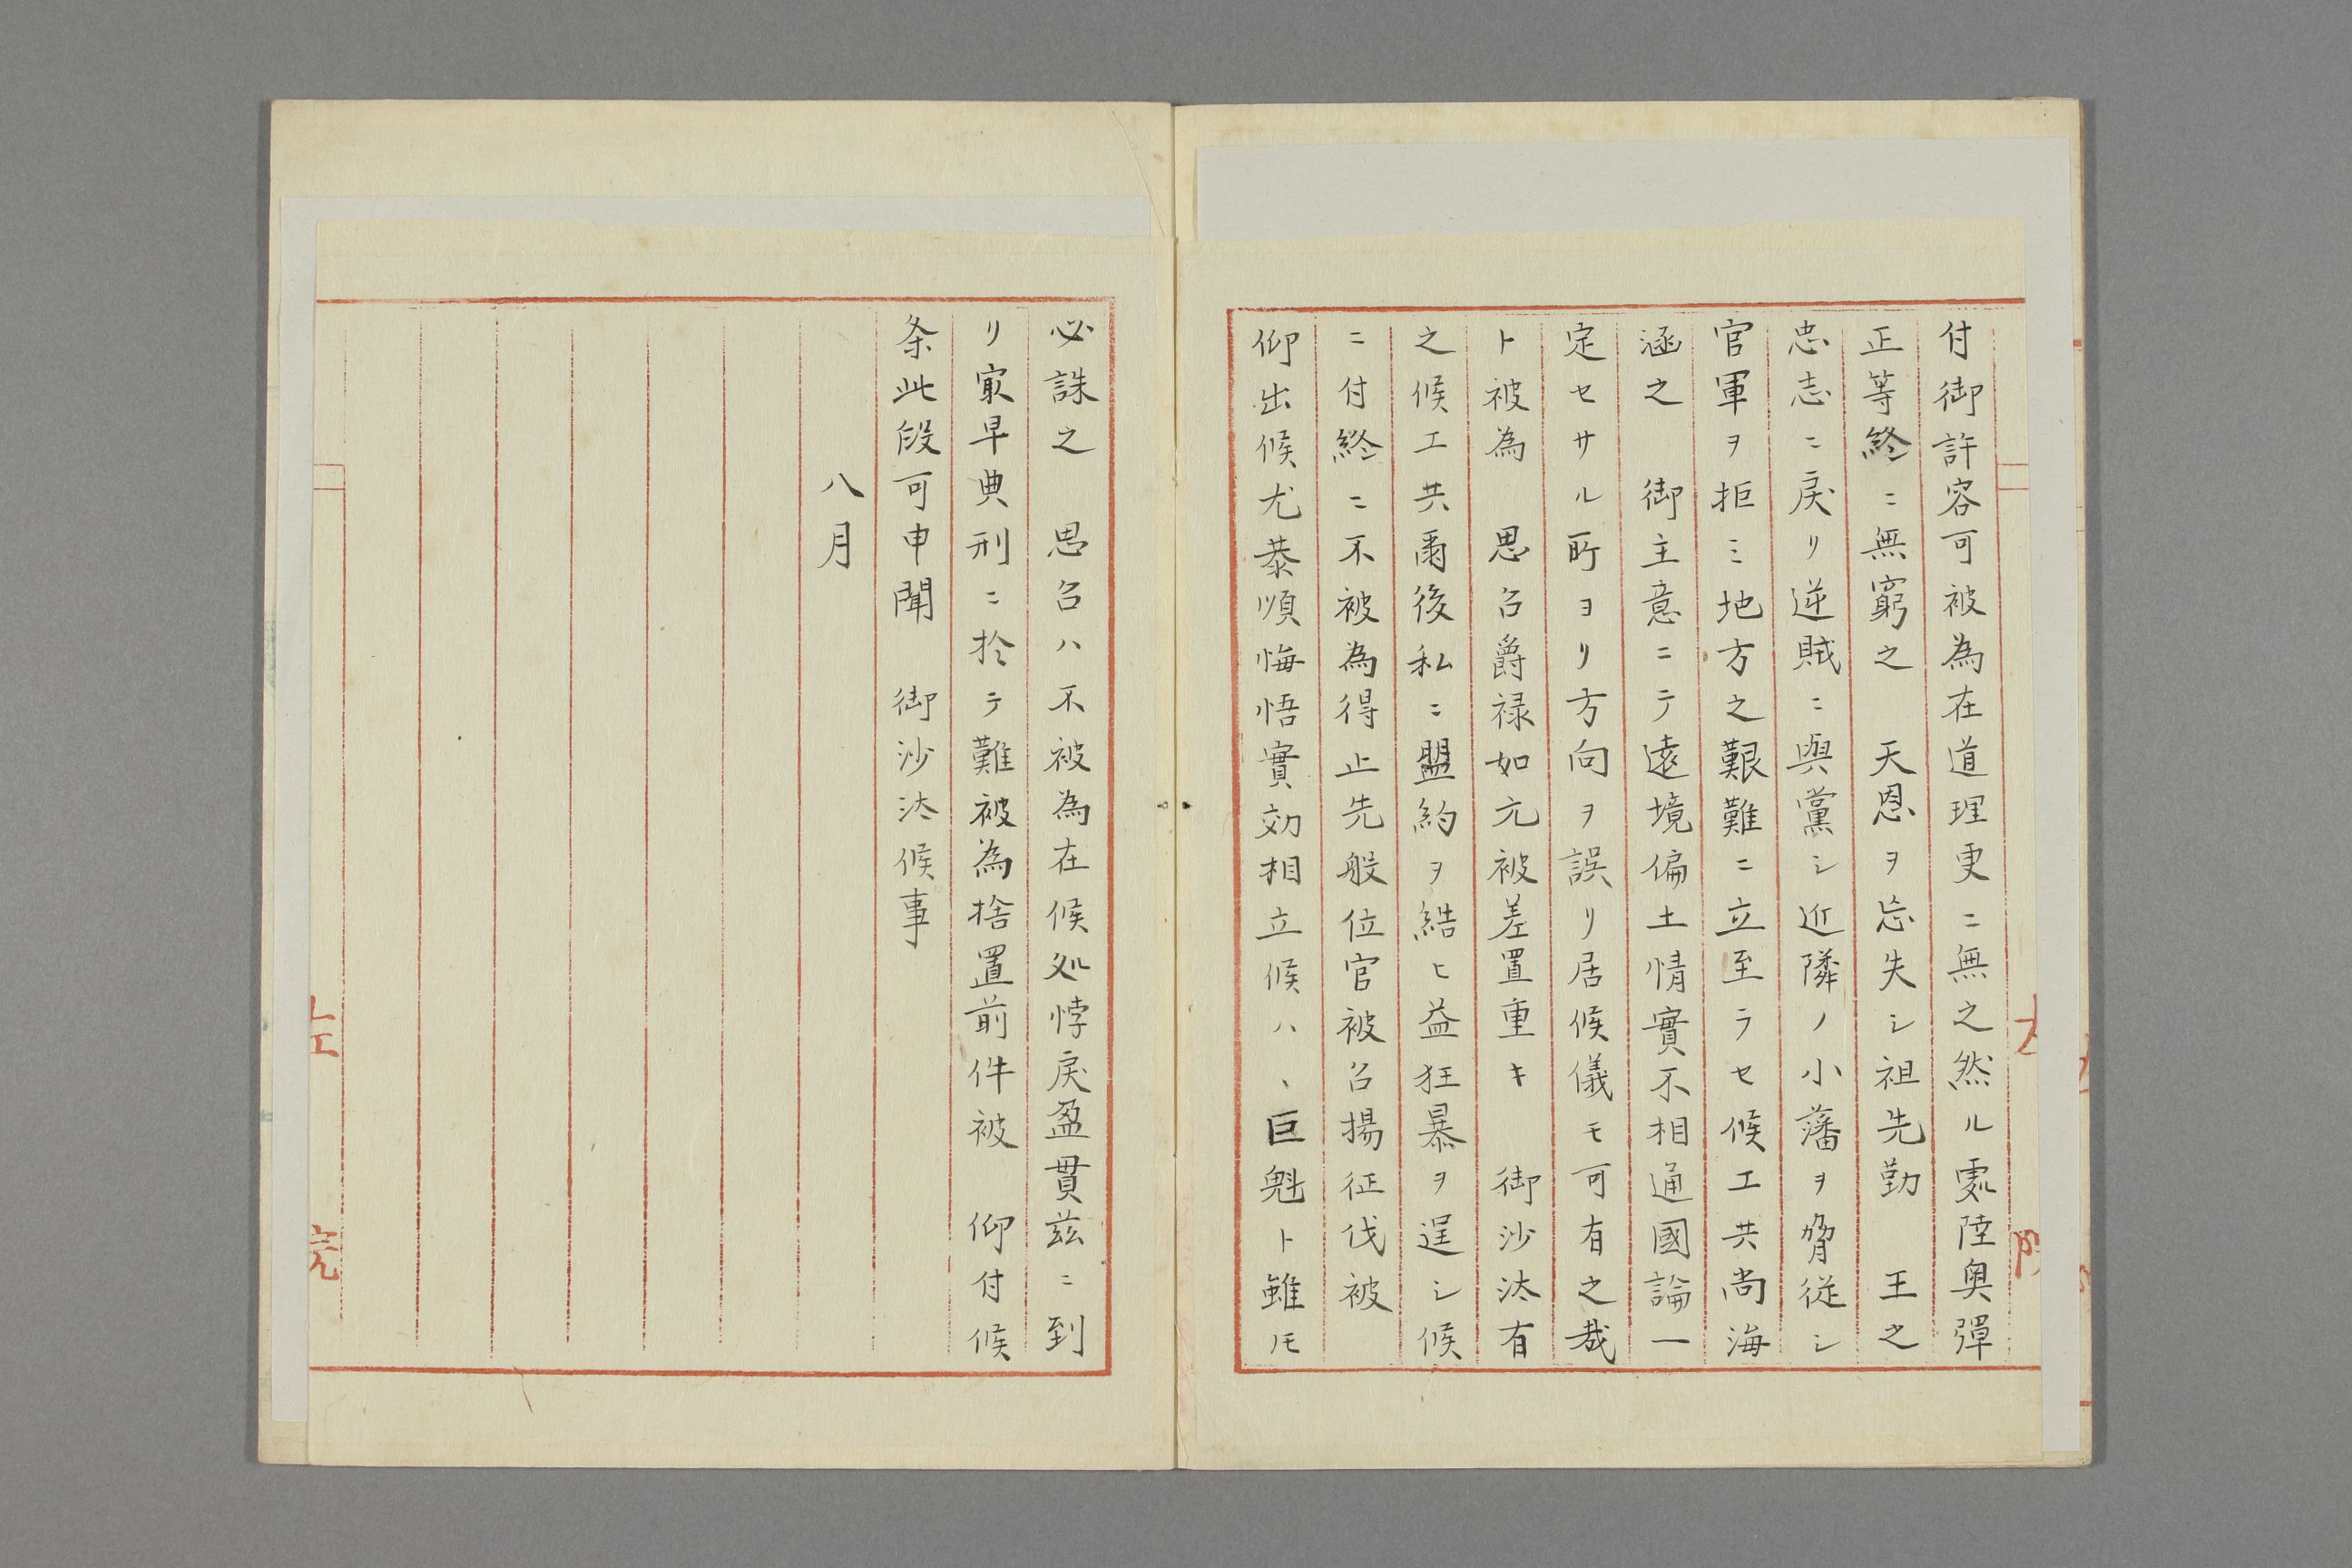 付御許容可被為在道理更ニ無之然ル処陸奥弾
正等終ニ無窮之　天恩ヲ忘失シ祖先勤　王之
忠志ニ戻リ逆賊ニ與黨シ近隣ノ小藩ヲ脅従シ
官軍ヲ拒ミ地方之艱難ニ立至ラセ候エ共尚海
涵之　御主意ニテ遠境偏土情實不相通國論一
定セサル所ヨリ方向ヲ誤リ居候儀モ可有之哉
ト被為　思召爵禄如元被差置重キ　御沙汰有
之候エ共爾後私ニ盟約ヲ結ヒ益狂暴ヲ逞シ候
ニ付終ニ不被為得止先般位官被召揚征伐被
仰出候尤恭順悔悟實効相立候ハヽ巨魁ト雖ﾄﾓ
必誅之　思召ハ不被為在候処悖戻盈貫茲ニ到
リ㝡早典刑ニ於テ難被為捨置前件被　仰付候
条此段可申聞　御沙汰候事
八月
左院